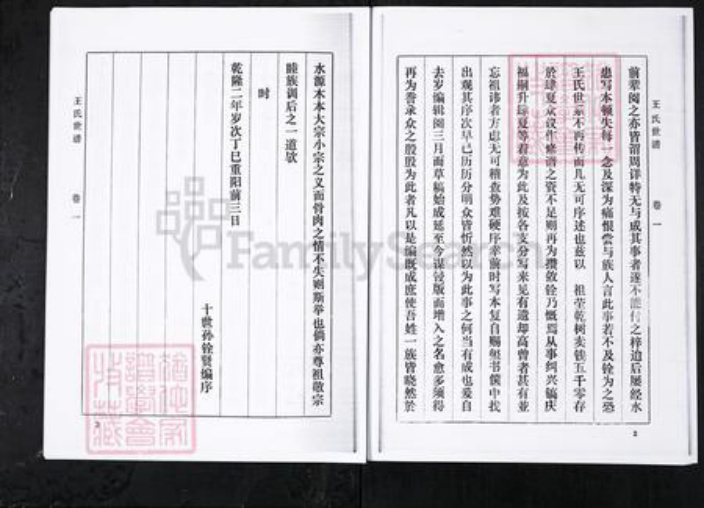 王氏世谱
卷一
前辈阅之亦皆谓周详特无与成其事者遂不能付之梓迨后屡经水
患写本顿失每一念及深为痛恨尝与族人言此事若不及铨为之恐
王氏世系不再传而几无可序述也兹以 祖茔乾树卖钱五千零存
於肆夏众议作修谱之资不足则再为攒敛铨乃慨焉从事纠兴镐庆
福嗣升肆夏等着意为此及按各支分写来见有遗却高曾者甚有並
忘祖讳者方虑无可稽查势难硬序幸前时写本复自赐玺书箧中找
出观其序次早已历历分明众皆忻然以为此事之何当有成也爰自
去岁编辑阅三月而草稿始成延至今谋锓版而增入之名愈多须得
再为誊录众之殷殷为此者凡以是编既成庶使吾姓一族皆晓然於
2
水源木本大宗小宗之义而骨肉之情不失则斯举也倘亦尊祖敬宗
睦族调后之一道欤
时
乾隆二年岁次丁巳重阳前三日
十世孙铨贤编序
王氏世谱
卷一
3
FamilySearch